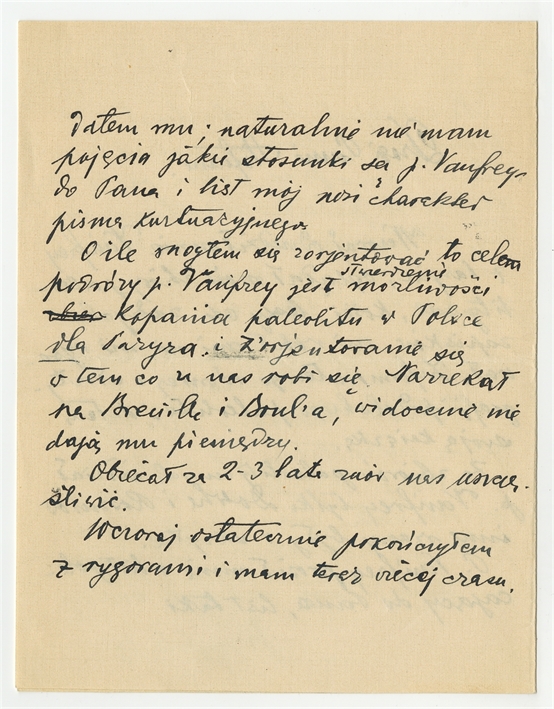 dałem mu; naturalnie nie mam
pojęcia jakie stosunki są p. Vaufrey'a
do Pana i list mój nosi charakter
pisma kurtuazyjnego.
O ile mogłem się zorjentować to celem
podróży p. Vaufrey jest stwierdzenie możliwości
kopania paleolitu w Polsce
dla Paryża i zorjentowanie się
o tem co u nas robi się. Narzekał
na Breuill'a i Boul'a, widocznie nie
dają mu pieniędzy.
Obiecał za 2-3 lata znów nas uszczę-
śliwić.
Wczoraj ostatecznie pokończyłem
z rygorami i mam teraz więcej czasu.